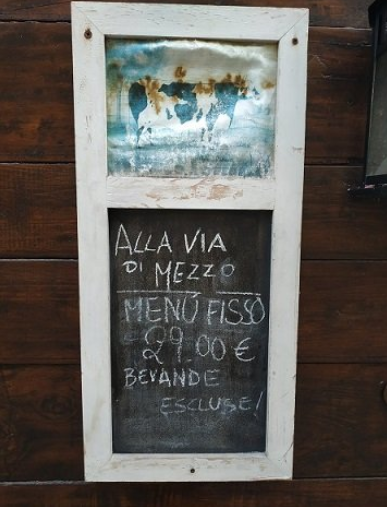 ALLA VIA
DI MEZZO
MENÚ FISSO
29.00 €
BEVANDE
ESCLUSE!